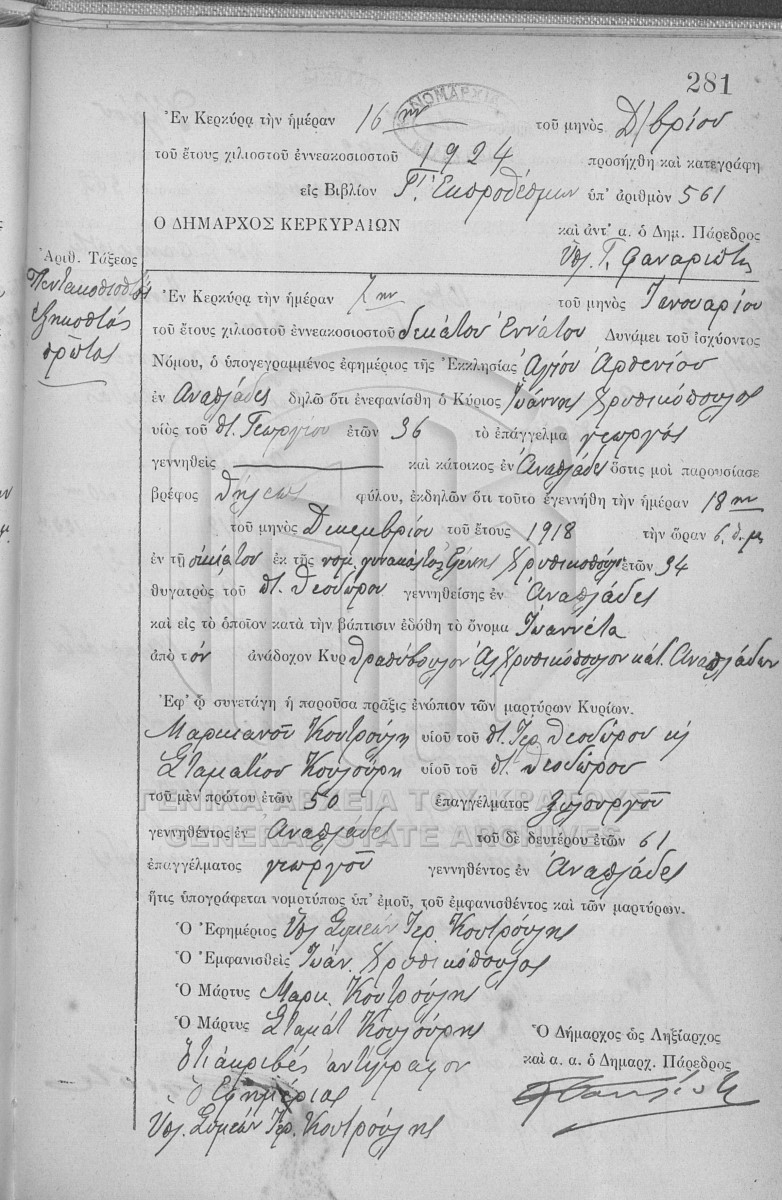 281
ΝΟΜΑΡΧΙΑ
Ἐν Κερκύρᾳ τὴν ἡμέραν 16ην τοῦ μηνὸς Δ/βρίου
τοῦ ἔτους χιλιοστοῦ ἐννεακοσιοστοῦ 1924 προσήχθη καὶ κατεγράφη
εἰς Βιβλίον Γ'. Ἐκπροθέσμων ὑπ' ἀριθμὸν 561
Ο ΔΗΜΑΡΧΟΣ ΚΕΡΚΥΡΑΙΩΝ
καὶ ἀντ' α. ὁ Δημ. Πάρεδρος
Ὑπ. Γ. Φαναριώτης
Ἀριθ. Τάξεως
Πεντακοσιοστός
ἑξηκοστός
πρῶτος
Ἐν Κερκύρᾳ τὴν ἡμέραν 7ην τοῦ μηνὸς Ἰανουαρίου
τοῦ ἔτους χιλιοστοῦ ἐννεακοσιοστοῦ δεκάτου ἐννάτου Δυνάμει τοῦ ἰσχύοντος
Νόμου, ὁ ὑπογεγραμμένος ἐφημέριος τῆς Ἐκκλησίας Ἁγίου Ἀρσενίου
ἐν Αναπλάδες δηλῶ ὅτι ἐνεφανίσθη ὁ Κύριος Ἰωάννης Χρυσικόπουλος
υἱὸς τοῦ π. Γεωργίου ἐτῶν 36 τὸ ἐπάγγελμα γεωργός
γεννηθεὶς καὶ κάτοικος ἐν Αναπλάδες ὅστις μοὶ παρουσίασε
βρέφος θήλεως φύλου, ἐκδηλῶν ὅτι τοῦτο ἐγεννήθη τὴν ἡμέραν 18ην
τοῦ μηνὸς Δεκεμβρίου τοῦ ἔτους 1918 τὴν ὥραν 6. π.μ
ἐν τῇ οἰκίᾳ του ἐκ τῆς νομ. γυναικός του Χρυσικοπούλου ἐτῶν 34
θυγατρὸς τοῦ π. Θεοδώρου γεννηθείσης ἐν Αναπλάδες
καὶ εἰς τὸ ὁποῖον κατὰ τὴν βάπτισιν ἐδόθη τὸ ὄνομα Ἰωαννέτα
ἀπὸ τὸν ἀνάδοχον Κυρ Θρασύβουλον Χρυσικόπουλον κάτ. Αναπλάδων
Ἐφ' ᾧ συνετάγη ἡ παροῦσα πρᾶξις ἐνώπιον τῶν μαρτύρων Κυρίων.
Μαρκιανοῦ Κουτρούλη υἱοῦ τοῦ π. Ἱερ. Θεοδώρου κ
Σταματίου Κουλούρη υἱοῦ τοῦ π. Θεοδώρου
τοῦ μὲν πρώτου ἐτῶν 50 ἐπαγγέλματος ξυλουργοῦ
γεννηθέντος ἐν Αναπλάδες τοῦ δὲ δευτέρου ἐτῶν 61
ἐπαγγέλματος γεωργοῦ γεννηθέντος ἐν Αναπλάδες
ἥτις ὑπογράφεται νομοτύπως ὑπ' ἐμοῦ, τοῦ ἐμφανισθέντος καὶ τῶν μαρτύρων.
Ὁ Ἐφημέριος Ὑπ. Συμεών Ἱερ. Κουτρούλης
Ὁ Ἐμφανισθεὶς Ἰωάν. Χρυσικόπουλος
Ὁ Μάρτυς Μαρκ. Κουτρούλης
Ὁ Μάρτυς Σταμάτ Κουλούρης
Ὁ Δήμαρχος ὡς Ληξίαρχος
καὶ α. α. ὁ Δημαρχ. Πάρεδρος
Ὅτι ἀκριβές ἀντίγραφον
Ὁ Ἐφημέριος
Ὑπ. Συμεών Ἱερ. Κουτρούλης
ΓΕΝΙΚΑ ΑΡΧΕΙΑ ΤΟΥ ΚΡΑΤΟΥΣ
GENERAL STATE ARCHIVES